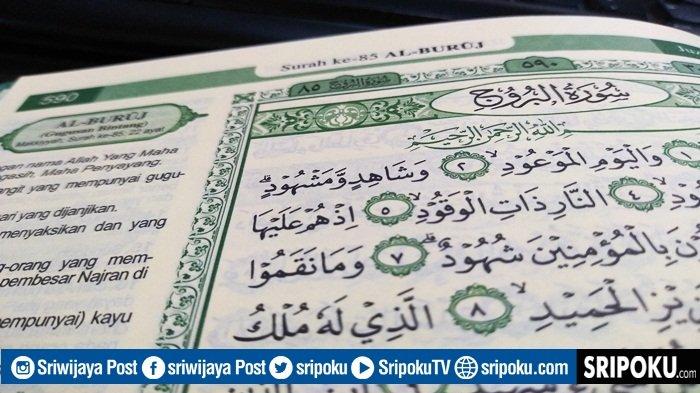 Surah ke-85 AL-BURŪJ
590
٨٥
سورة البروج
٥٩٠
AL-BURŪJ
(Gugusan Bintang)
Makkiyyah, Surah ke-85: 22 ayat
nama Allah Yang Maha
Maha Penyayang.
yang mempunyai gugu-
yang dijanjikan.
menyaksikan dan yang
orang yang mem-
pembesar Najran di
kayu
سُوْرَةُ الْبُرُوْجِ
اللّٰهِ الرَّحْمٰنِ الرَّحِيْمِ
وَالْيَوْمِ الْمَوْعُوْدِۙ ٢ وَشَاهِدٍ وَّمَشْهُوْدٍۗ
٤ النَّارِ ذَاتِ الْوَقُوْدِۙ ٥ اِذْ هُمْ عَلَيْهَا
بِالْمُؤْمِنِيْنَ شُهُوْدٌۗ ٧ وَمَا نَقَمُوْا
الْحَمِيْدِۙ ٨ الَّذِيْ لَهٗ مُلْكُ
Sriwijaya Post sriwijaya Post sripoku SripokuTV sripoku.com SRIPOKU.COM